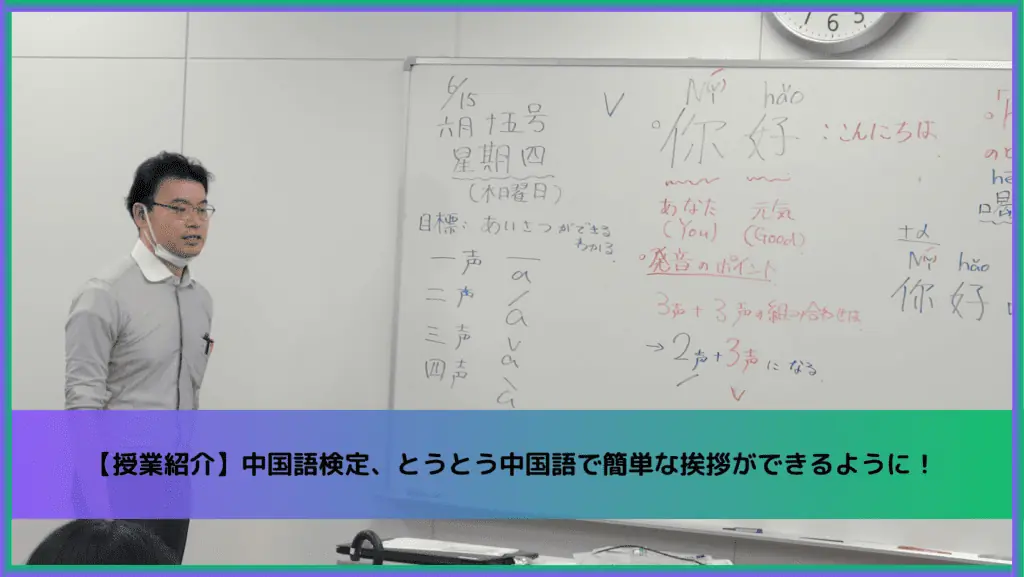 6/15
六月十五号
星期四
(木曜日)
目標: あいさつができる
わかる
一声 ā
二声 á
三声 ǎ
四声 à
V
Nǐ hǎo
你好 : こんにちは
あなた 元気
(You) (Good)
発音のポイント
3声+3声の組み合わせは
→ 2声+3声になる
+α
Nǐ hǎo
你好
喝
7 6 5
【授業紹介】中国語検定、とうとう中国語で簡単な挨拶ができるように!